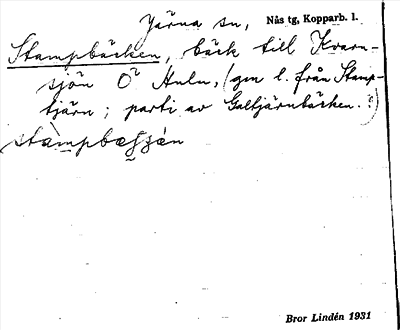 Järna sn, Nås tg, Kopparb. l.
Stampbäcken, bäck till Kvarn-
sjön Ö Huln, (gm l. från Stamp-
tjärn; parti av Galtjärnbäcken.)
Bror Lindén 1931